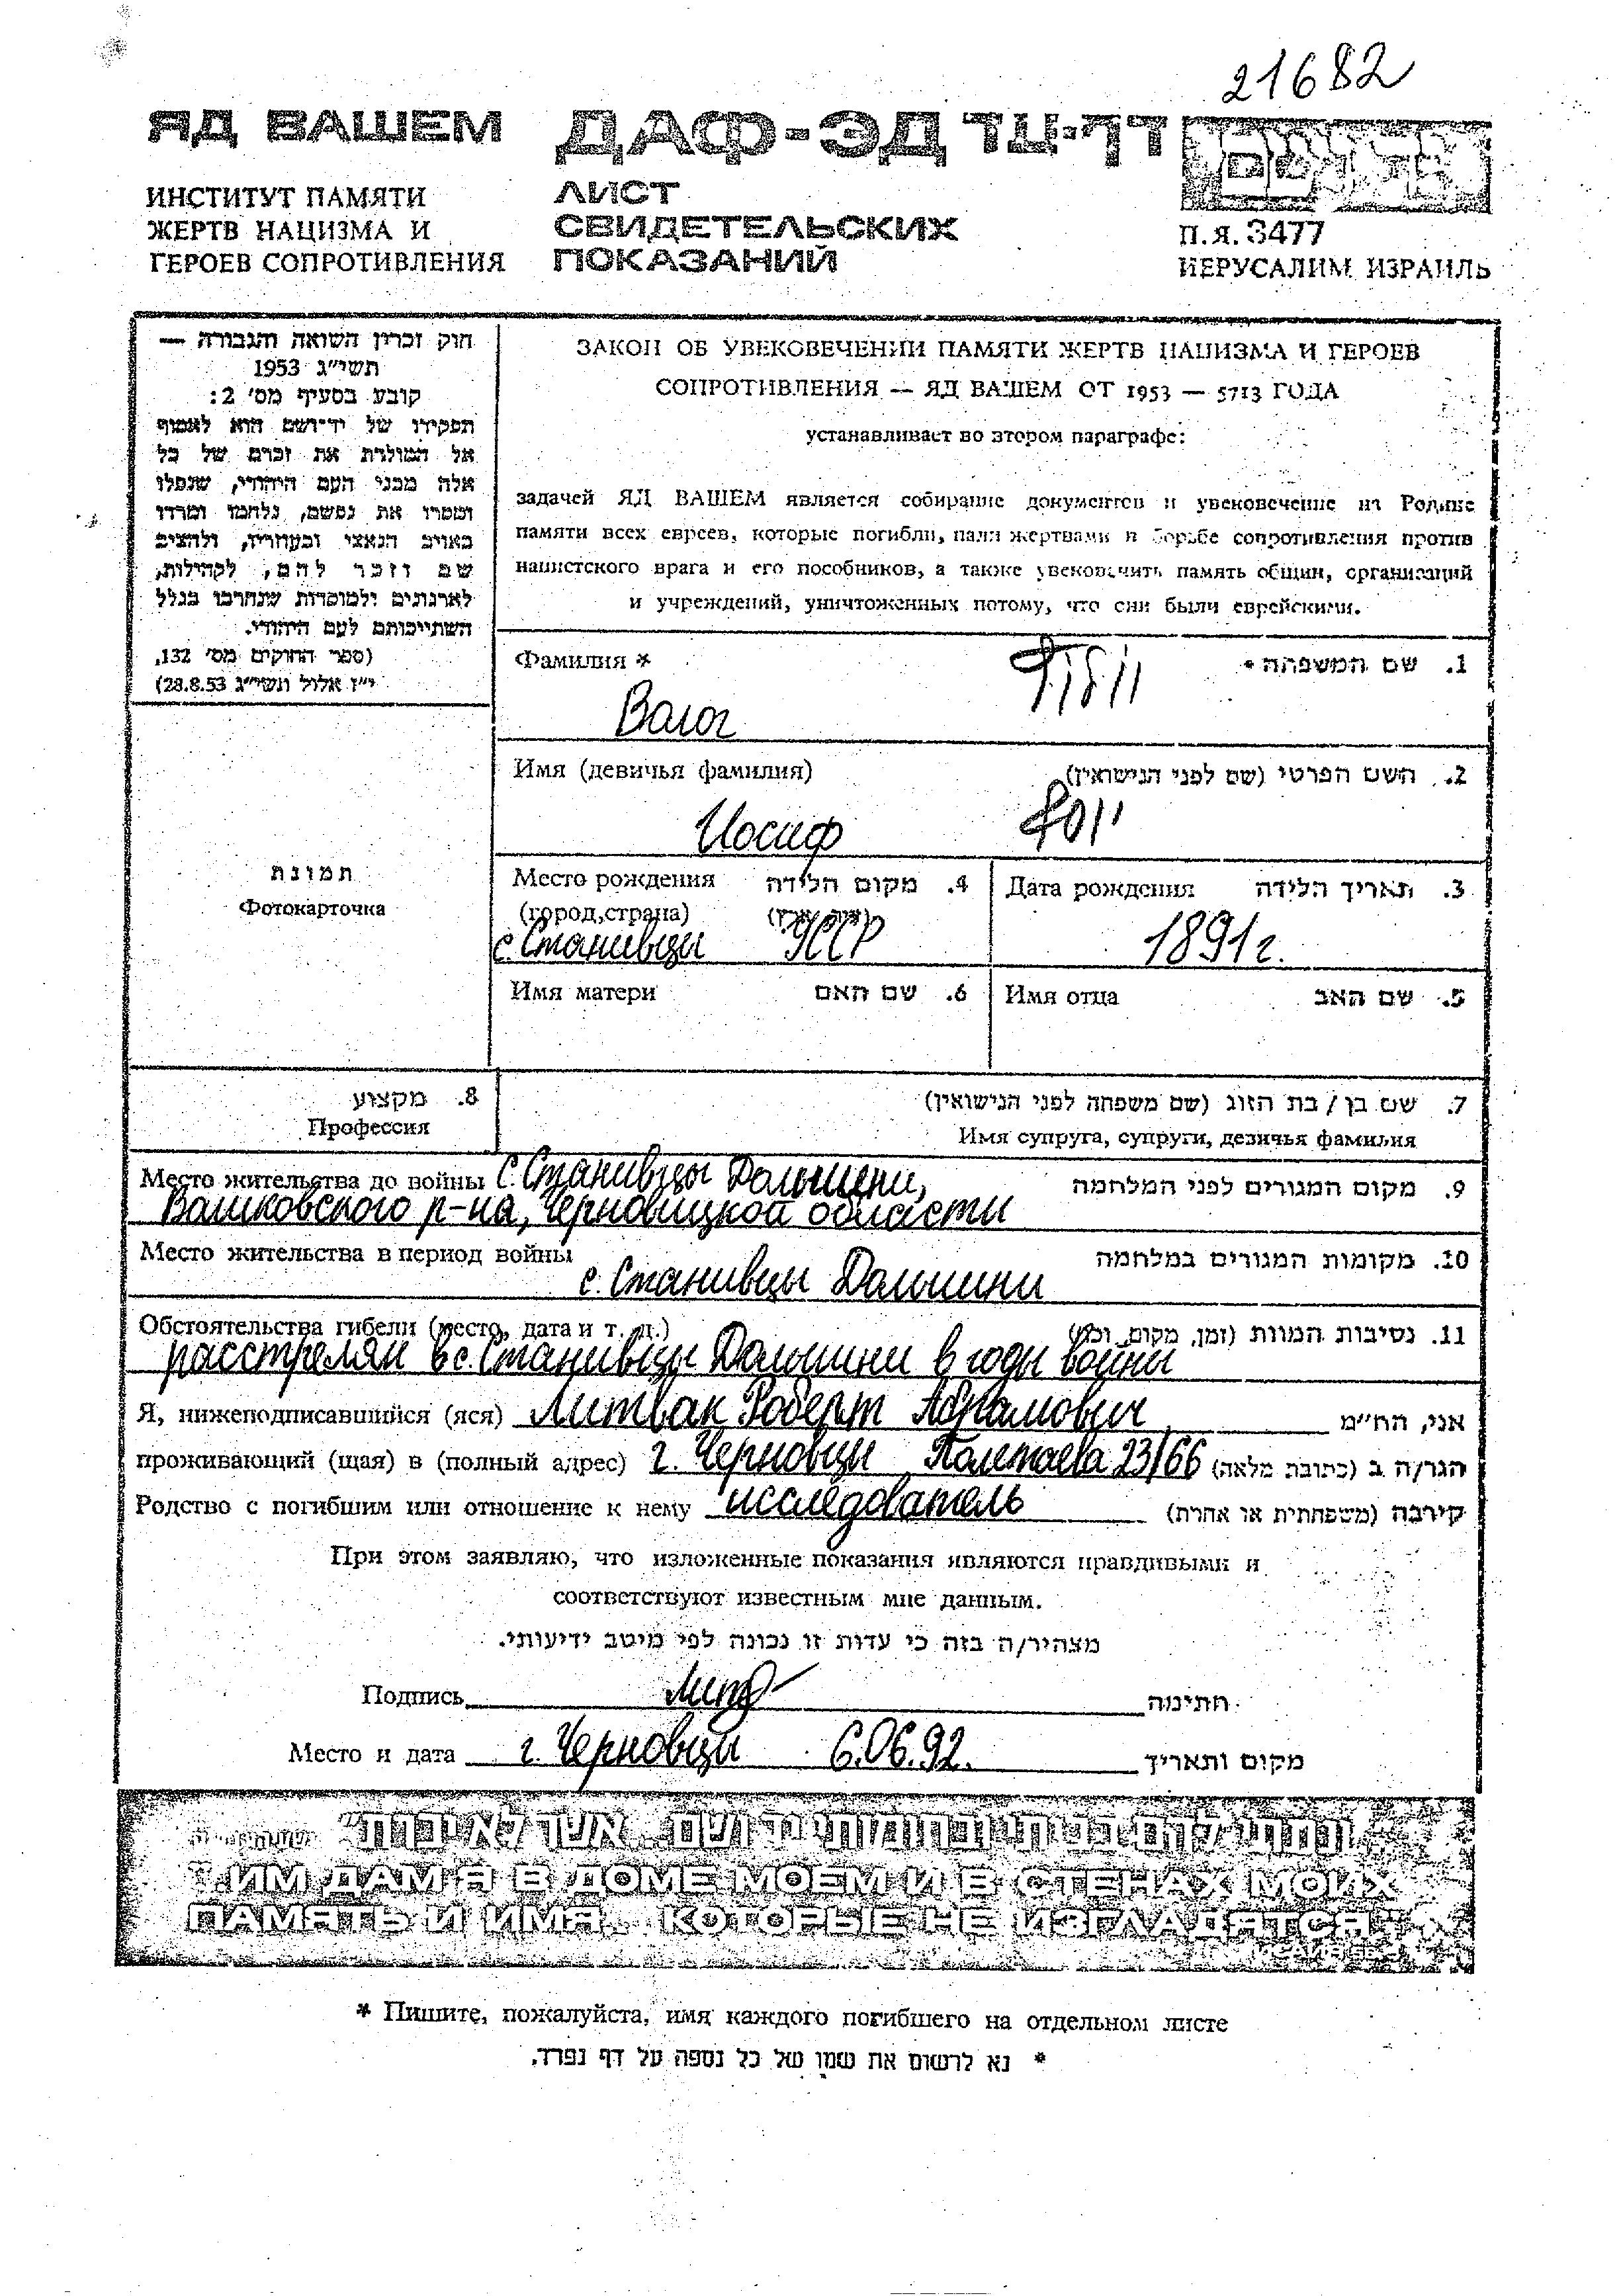 21682
ЯД ВАШЕМ ДАФ-ЭД דף-עד
ИНСТИТУТ ПАМЯТИ
ЖЕРТВ НАЦИЗМА И
ГЕРОЕВ СОПРОТИВЛЕНИЯ
ЛИСТ
СВИДЕТЕЛЬСКИХ
ПОКАЗАНИЙ
П.Я. 3477
ИЕРУСАЛИМ, ИЗРАИЛЬ
חוק זכרון השואה והגבורה —
תשי״ג 1953
קובע בסעיף מס׳ 2:
תפקידו של יד־ושם הוא לאסוף
אל המולדת את זכרם של כל
אלה מבני העם היהודי, שנפלו
ומסרו את נפשם, נלחמו ומרדו
באויב הנאצי ובעוזריו, ולהציב
שם וזכר להם, לקהילות,
לארגונים ולמוסדות שנחרבו בגלל
השתייכותם לעם היהודי.
(ספר החוקים מס׳ 132,
י״ז אלול תשי״ג 28.8.53)
ЗАКОН ОБ УВЕКОВЕЧЕНИИ ПАМЯТИ ЖЕРТВ НАЦИЗМА И ГЕРОЕВ
СОПРОТИВЛЕНИЯ — ЯД ВАШЕМ ОТ 1953 — 5713 ГОДА
устанавливает во втором параграфе:
задачей ЯД ВАШЕМ является собирание документов и увековечение на Родине
памяти всех евреев, которые погибли, пали жертвами в борьбе сопротивления против
нацистского врага и его пособников, а также увековечить память общин, организаций
и учреждений, уничтоженных потому, что они были еврейскими.
Фамилия * 1. שם המשפחה *
Имя (девичья фамилия) 2. השם הפרטי (שם לפני הנישואין)
Иосиф יוסף
תמונת
Фотокарточка
Место рождения 4. מקום הלידה
(город, страна)
с. Станивцы УССР
Дата рождения 3. תאריך הלידה
1891 г.
Имя матери 6. שם האם
Имя отца 5. שם האב
8. מקצוע
Профессия
7. שם בן / בת הזוג (שם משפחה לפני הנישואין)
Имя супруга, супруги, девичья фамилия
Место жительства до войны с. Станивцы Долишни, 9. מקום המגורים לפני המלחמה
Вашковского р-на, Черновицкой области
Место жительства в период войны 10. מקומות המגורים במלחמה
с. Станивцы Долишни
Обстоятельства гибели (место, дата и т. д.) 11. נסיבות המוות (זמן, מקום, וכו׳)
расстрелян в с. Станивцы Долишни в годы войны
Я, нижеподписавшийся (яся) Литвак Роберт Абрамович אני, הח״מ
проживающий (щая) в (полный адрес) г. Черновцы Полетаева 23/66 הגר/ה ב (כתובת מלאה)
Родство с погибшим или отношение к нему исследователь קירבה (משפחתית או אחרת)
При этом заявляю, что изложенные показания являются правдивыми и
соответствуют известным мне данным.
מצהיר/ה בזה כי עדות זו נכונה לפי מיטב ידיעותי.
Подпись חתימה
Место и дата г. Черновцы 6.06.92. מקום ותאריך
״ונתתי להם בביתי ובחומותי יד ושם... אשר לא יכרת״
"...ИМ ДАМ Я В ДОМЕ МОЕМ И В СТЕНАХ МОИХ
ПАМЯТЬ И ИМЯ... КОТОРЫЕ НЕ ИЗГЛАДЯТСЯ."
* Пишите, пожалуйста, имя каждого погибшего на отдельном листе
* נא לרשום את שמו של כל נספה על דף נפרד.